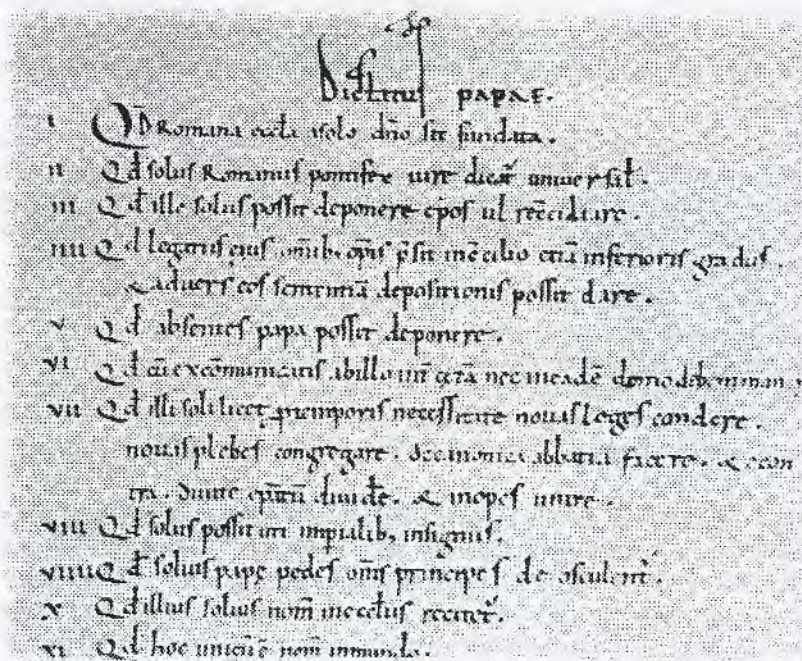 Dictatus PAPAE.
i QD Romana eccła a solo dño sit fundata.
ii Qđ solus Romanus pontifex iure dicat̃ universał.
iii Qđ ille solus possit deponere ep̃os uł recc̃iliare.
iiii Qđ legatus eius omĩb; ep̃is p̃sit in cc̃ilio etiã inferioris gradus.
& adversus eos sententiã depositionis possit dare.
v Qđ absentes papa possit deponere.
vi Qđ cũ excõmunicatis ab illo int̃ cetã nec in eadẽ domo debem' man
vii Qđ illi soli licet ꝓ temporis necessitate novas leges condere.
novas plebes congregare. de canonica abbatia facere. & econ
tra. divite ep̃atũ divide. & inopes unire.
viii Qđ solus possit uti imp̃ialib; insigniis.
viiii Qđ solius papę pedes om̃s principes deosculent̃.
x Qđ illius solius nom̃ in ecc̃lis recitet̃.
xi Qđ hoc unicũ ẽ nom̃ in mundo.